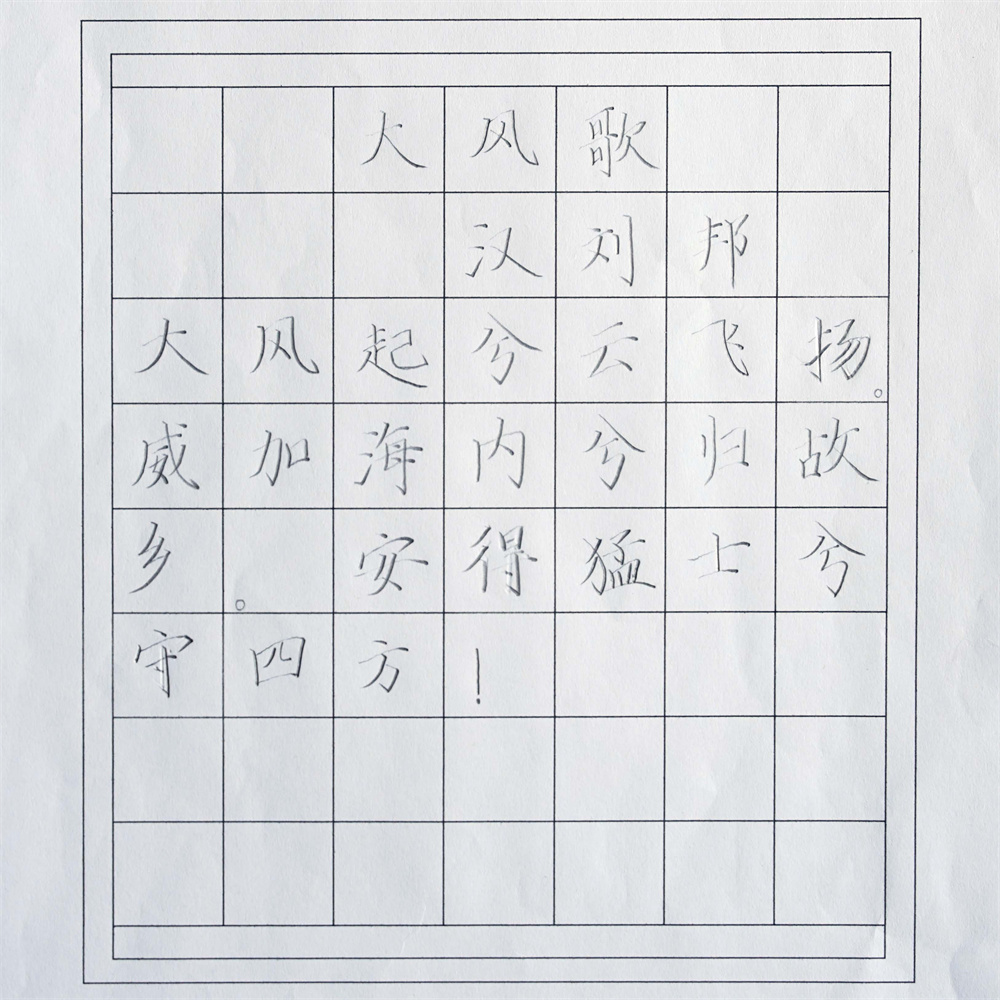 大风歌
汉刘邦
大风起兮云飞扬。
威加海内兮归故
乡。安得猛士兮
守四方！